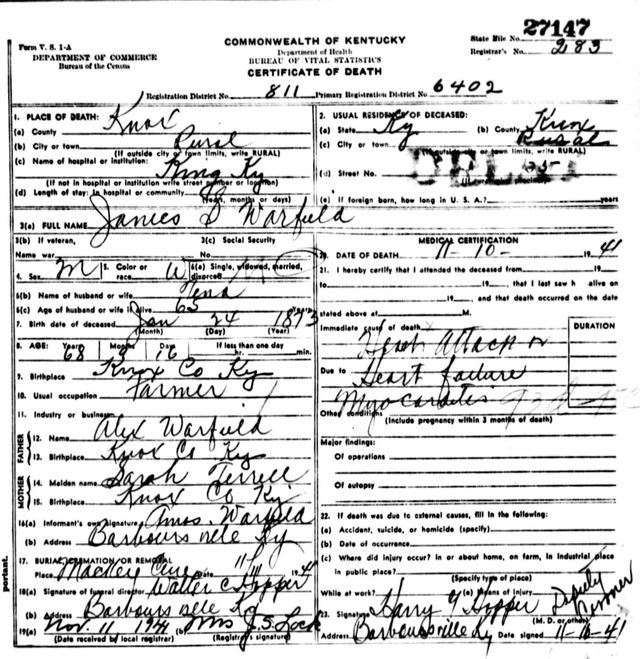 27147
Form V. S. 1-A
DEPARTMENT OF COMMERCE
Bureau of the Census
COMMONWEALTH OF KENTUCKY
Department of Health
BUREAU OF VITAL STATISTICS
CERTIFICATE OF DEATH
State File No.
Registrar's No. 283
Registration District No. 811 Primary Registration District No. 6402
1. PLACE OF DEATH:
(a) County Knox
(b) City or town Rural
(If outside city or town limits, write RURAL)
(c) Name of hospital or institution:
Ky
(If not in hospital or institution write street number or location)
(d) Length of stay: In hospital or community
(Years, months or days)
2. USUAL RESIDENCE OF DECEASED:
(a) State Ky (b) County Knox
(c) City or town Rural
(If outside city or town limits, write RURAL)
(d) Street No.
(e) If foreign born, how long in U. S. A.? years
3(a) FULL NAME James D Warfield
3(b) If veteran,
Name war
3(c) Social Security
No.
4. Sex M 5. Color or race W 6(a) Single, widowed, married, divorced
6(b) Name of husband or wife
6(c) Age of husband or wife if alive 65 years
7. Birth date of deceased Jan 24 1873
(Month) (Day) (Year)
8. AGE: Years Months Days If less than one day
68 9 16 hr. min.
9. Birthplace Knox Co Ky
10. Usual occupation Farmer
11. Industry or business
FATHER
12. Name Alex Warfield
13. Birthplace Knox Co Ky
MOTHER
14. Maiden name Sarah Terrell
15. Birthplace Knox Co Ky
16(a) Informant's own signature Amos. Warfield
(b) Address Barboursville Ky
17. BURIAL, CREMATION OR REMOVAL
Place Mackey 11 1941
18(a) Signature of funeral director Walter C Hopper
(b) Address Barboursville Ky
19(a) Nov. 11 1941 (b) Mrs J. S. Lock
(Date received by local registrar) (Registrar's signature)
MEDICAL CERTIFICATION
20. DATE OF DEATH 11-10- 1941
21. I hereby certify that I attended the deceased from 19
to 19, that I last saw h alive on
19, and that death occurred on the date
stated above at M.
DURATION
Immediate cause of death
Heart Attack or
Due to Heart failure
Myocardites
Other conditions
(Include pregnancy within 3 months of death)
Major findings:
Of operations
Of autopsy
22. If death was due to external causes, fill in the following:
(a) Accident, suicide, or homicide (specify)
(b) Date of occurrence
(c) Where did injury occur? in or about home, on farm, in industrial place
in public place?
(Specify type of place)
While at work? (e) Means of injury
23. Signature Harry Y Hopper Deputy Coroner
(M. D. or other)
Address Barboursville Ky Date signed 11-10-41
portant.